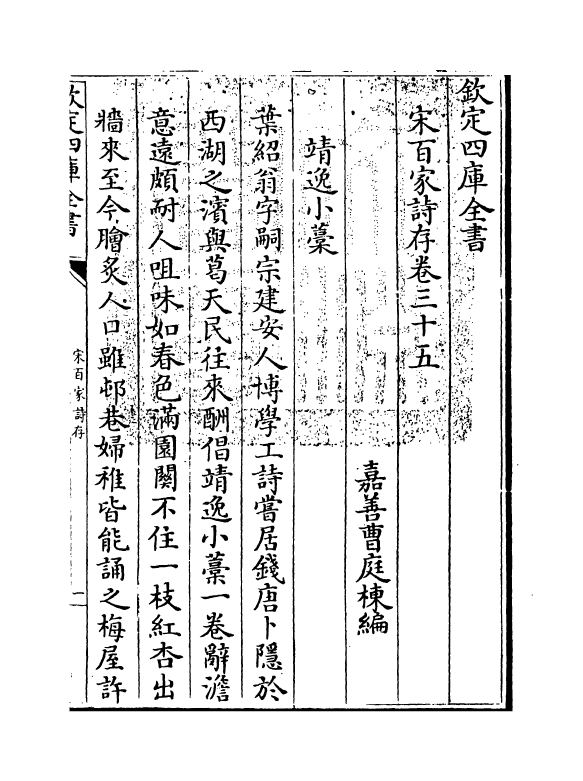 欽定四庫全書
宋百家詩存卷三十五
嘉善曹庭棟編
靖逸小藁
葉紹翁字嗣宗建安人博學工詩嘗居錢唐卜隱於
西湖之濱與葛天民往來酬倡靖逸小藁一卷辭澹
意遠頗耐人咀味如春色滿園關不住一枝紅杏出
牆來至今膾炙人口雖邨巷婦稚皆能誦之梅屋許
欽定四庫全書
宋百家詩存
一